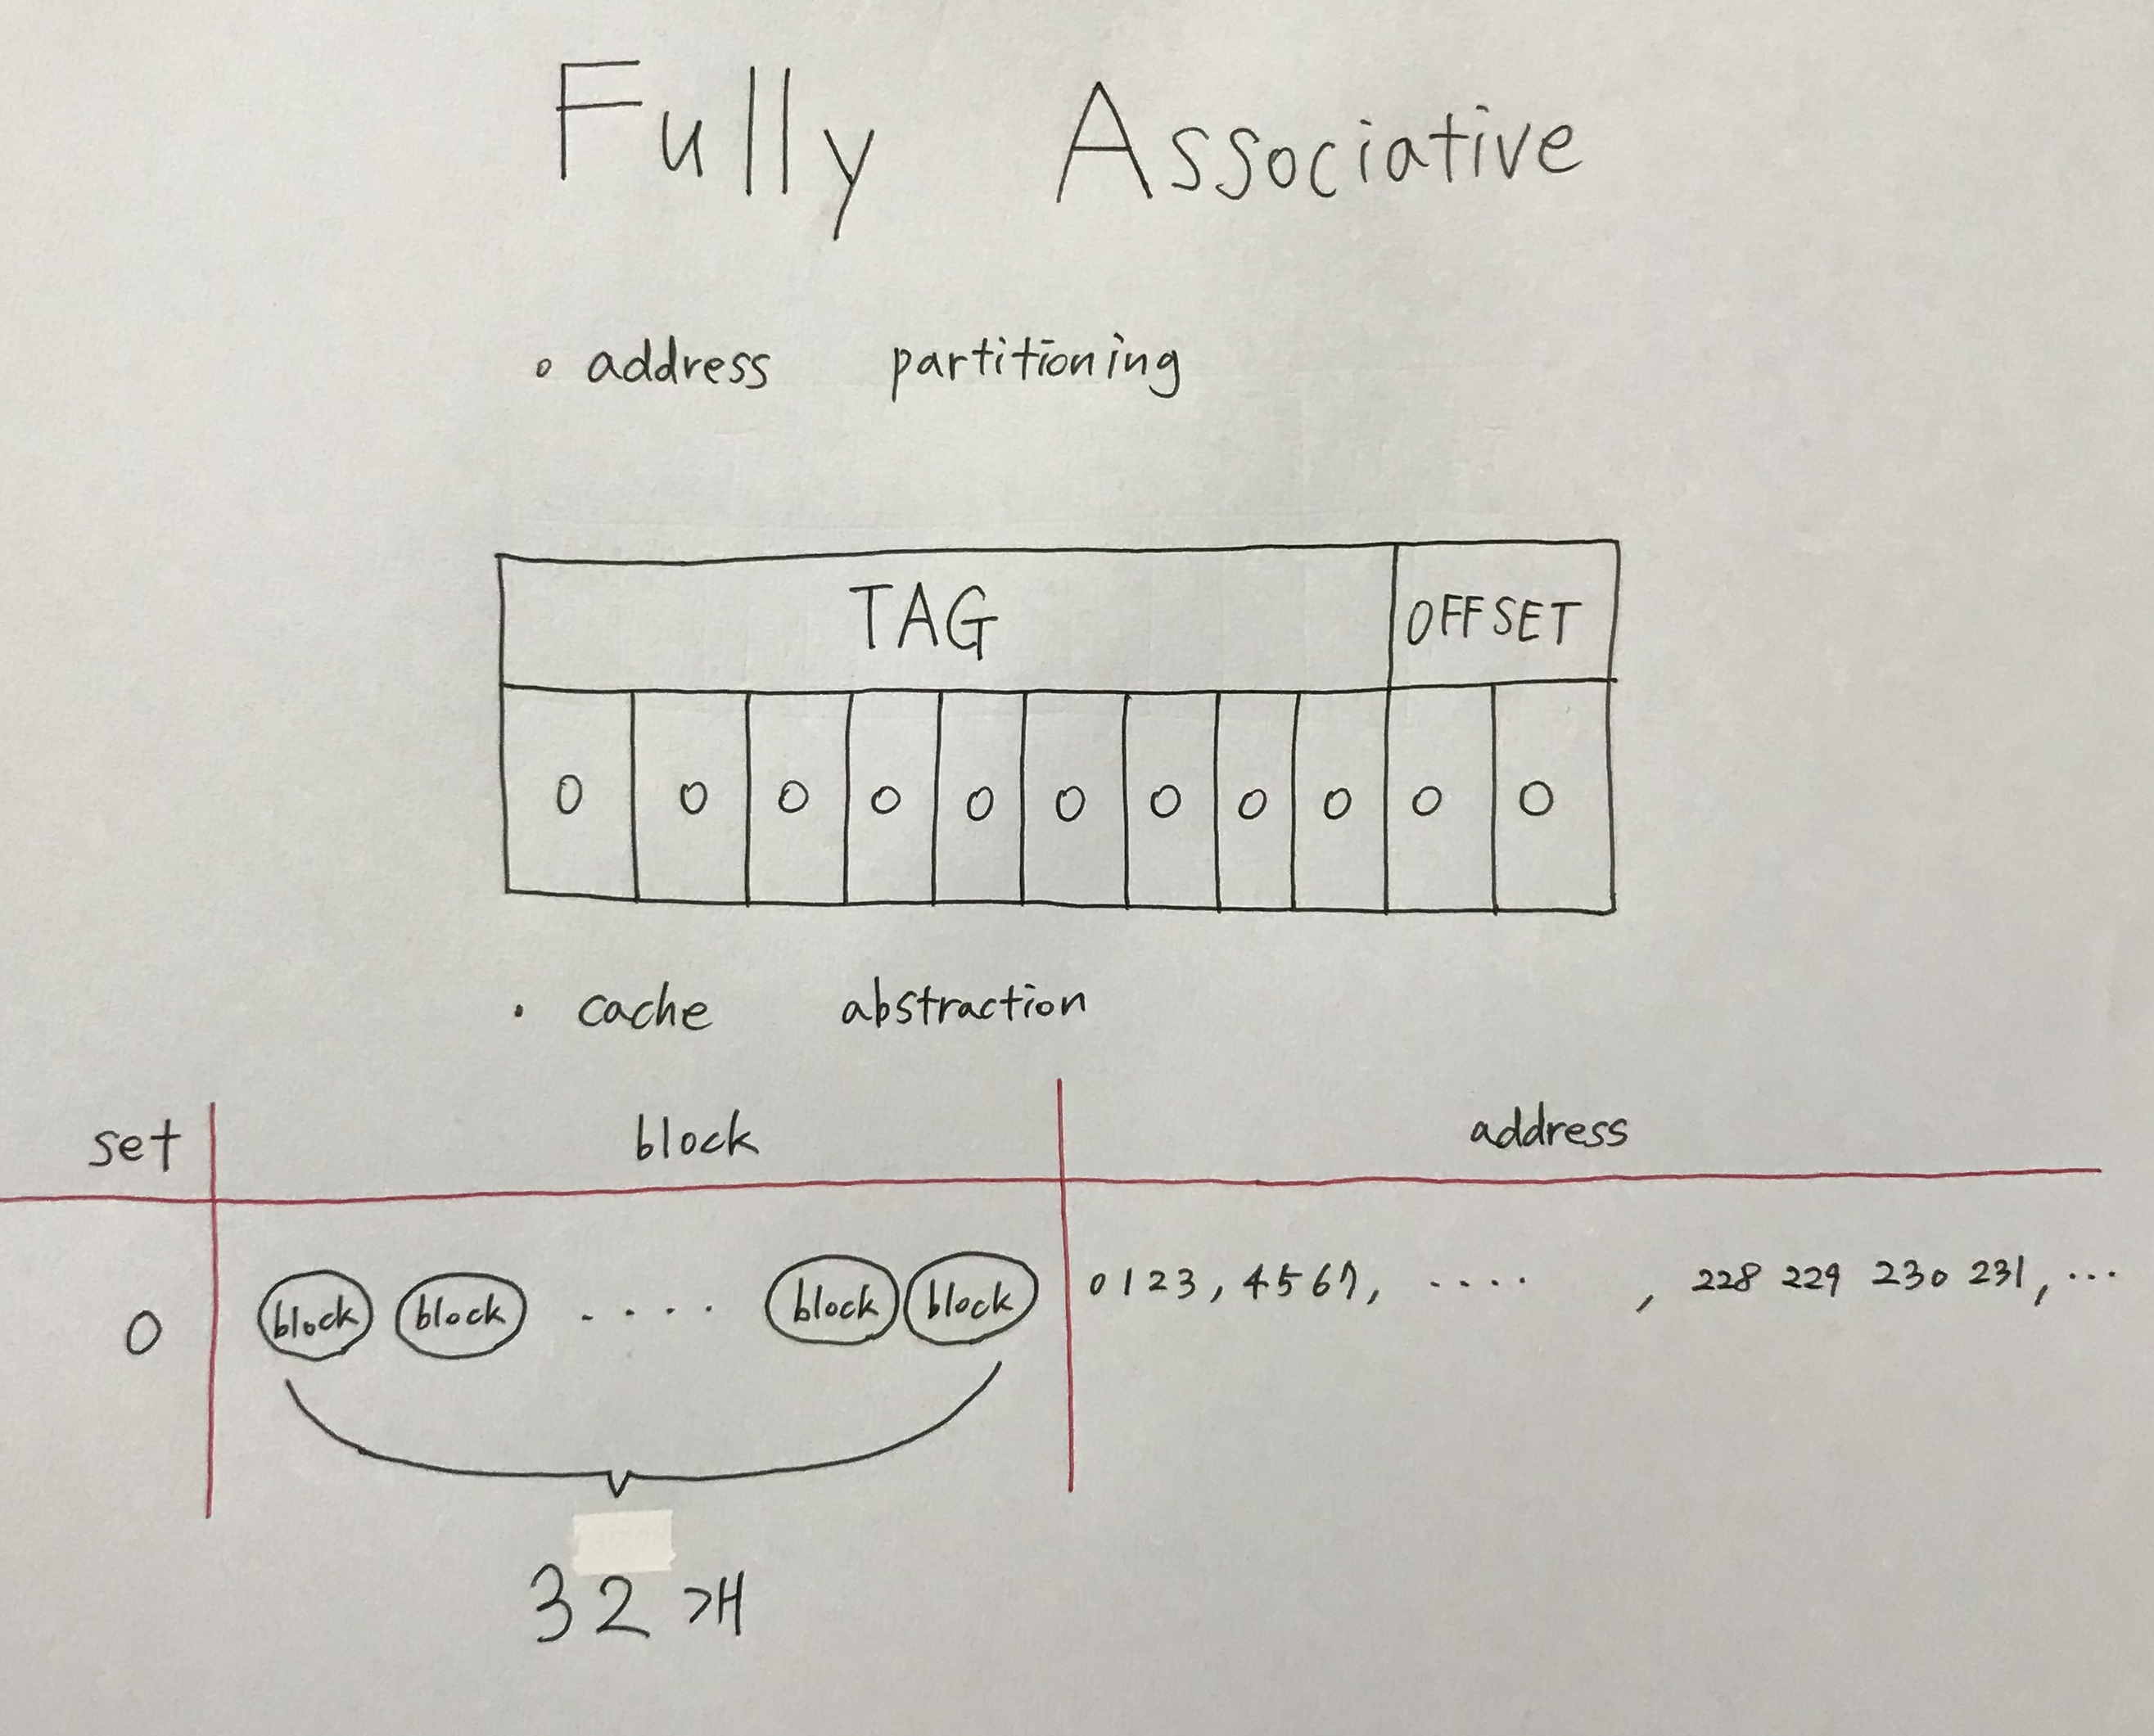 Fully Associative
∘ address partitioning
TAG OFFSET
0 0 0 0 0 0 0 0 0 0 0
· cache abstraction
set block address
0 block block ····· block block 0 1 2 3 , 4 5 6 7 , ···· , 228 229 230 231 , ···
32 개